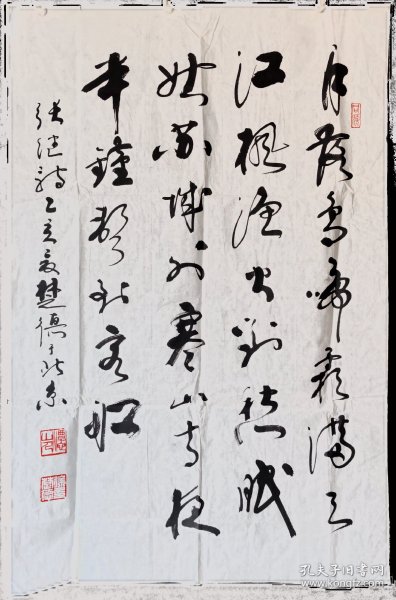 月落乌啼霜满天
江枫渔火对愁眠
姑苏城外寒山寺夜
半钟声到客船
张继诗乙亥夏楚僡于北京
孔夫子旧书网
www.kongfz.com